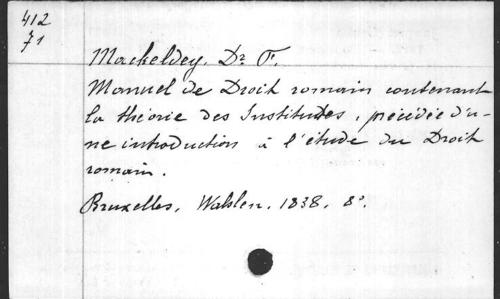 412
71
Mackeldey, Dr F.
Manuel de Droit romain contenant
la théorie des Institutes, précédée d'u-
ne introduction à l'étude du Droit
romain.
Bruxelles, Wahlen, 1838, 8º.